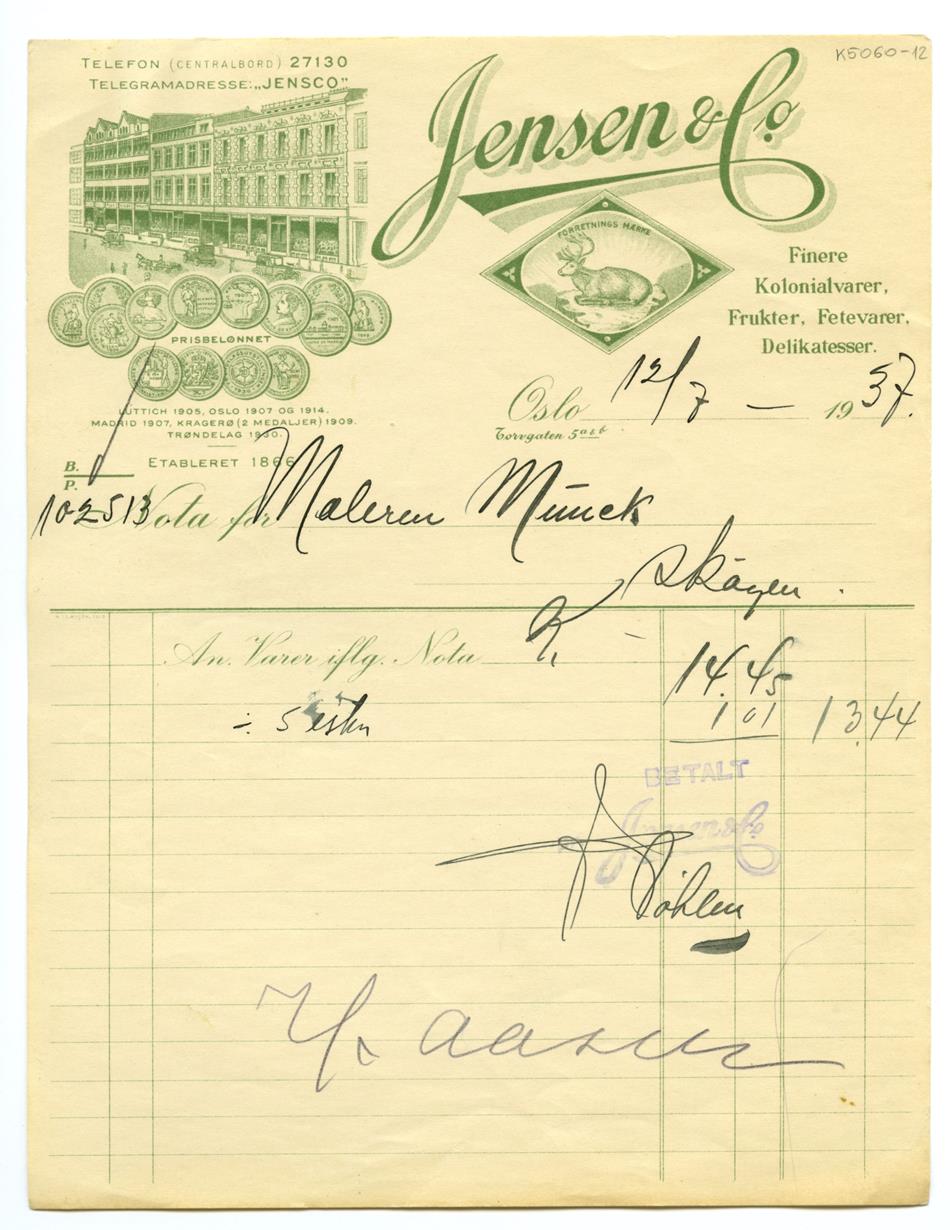 K5060-12
TELEFON (CENTRALBORD) 27130
TELEGRAMADRESSE: „JENSCO”
Jensen & Co.
FORRETNINGS MÆRKE
Finere
Kolonialvarer,
Frukter, Fetevarer,
Delikatesser.
PRISBELØNNET
LÜTTICH 1905, OSLO 1907 OG 1914.
MADRID 1907, KRAGERØ (2 MEDALJER) 1909.
TRØNDELAG 1930.
ETABLERET 1866
Oslo 12/7 — 1937.
Torvgaten 5 a & b
B.
P.
102513
Nota for Maleren Munck
Skøyen.
An. Varer iflg. Nota K. – 14.45
÷ 5 1 01 13.44
BETALT
Jensen & Co.